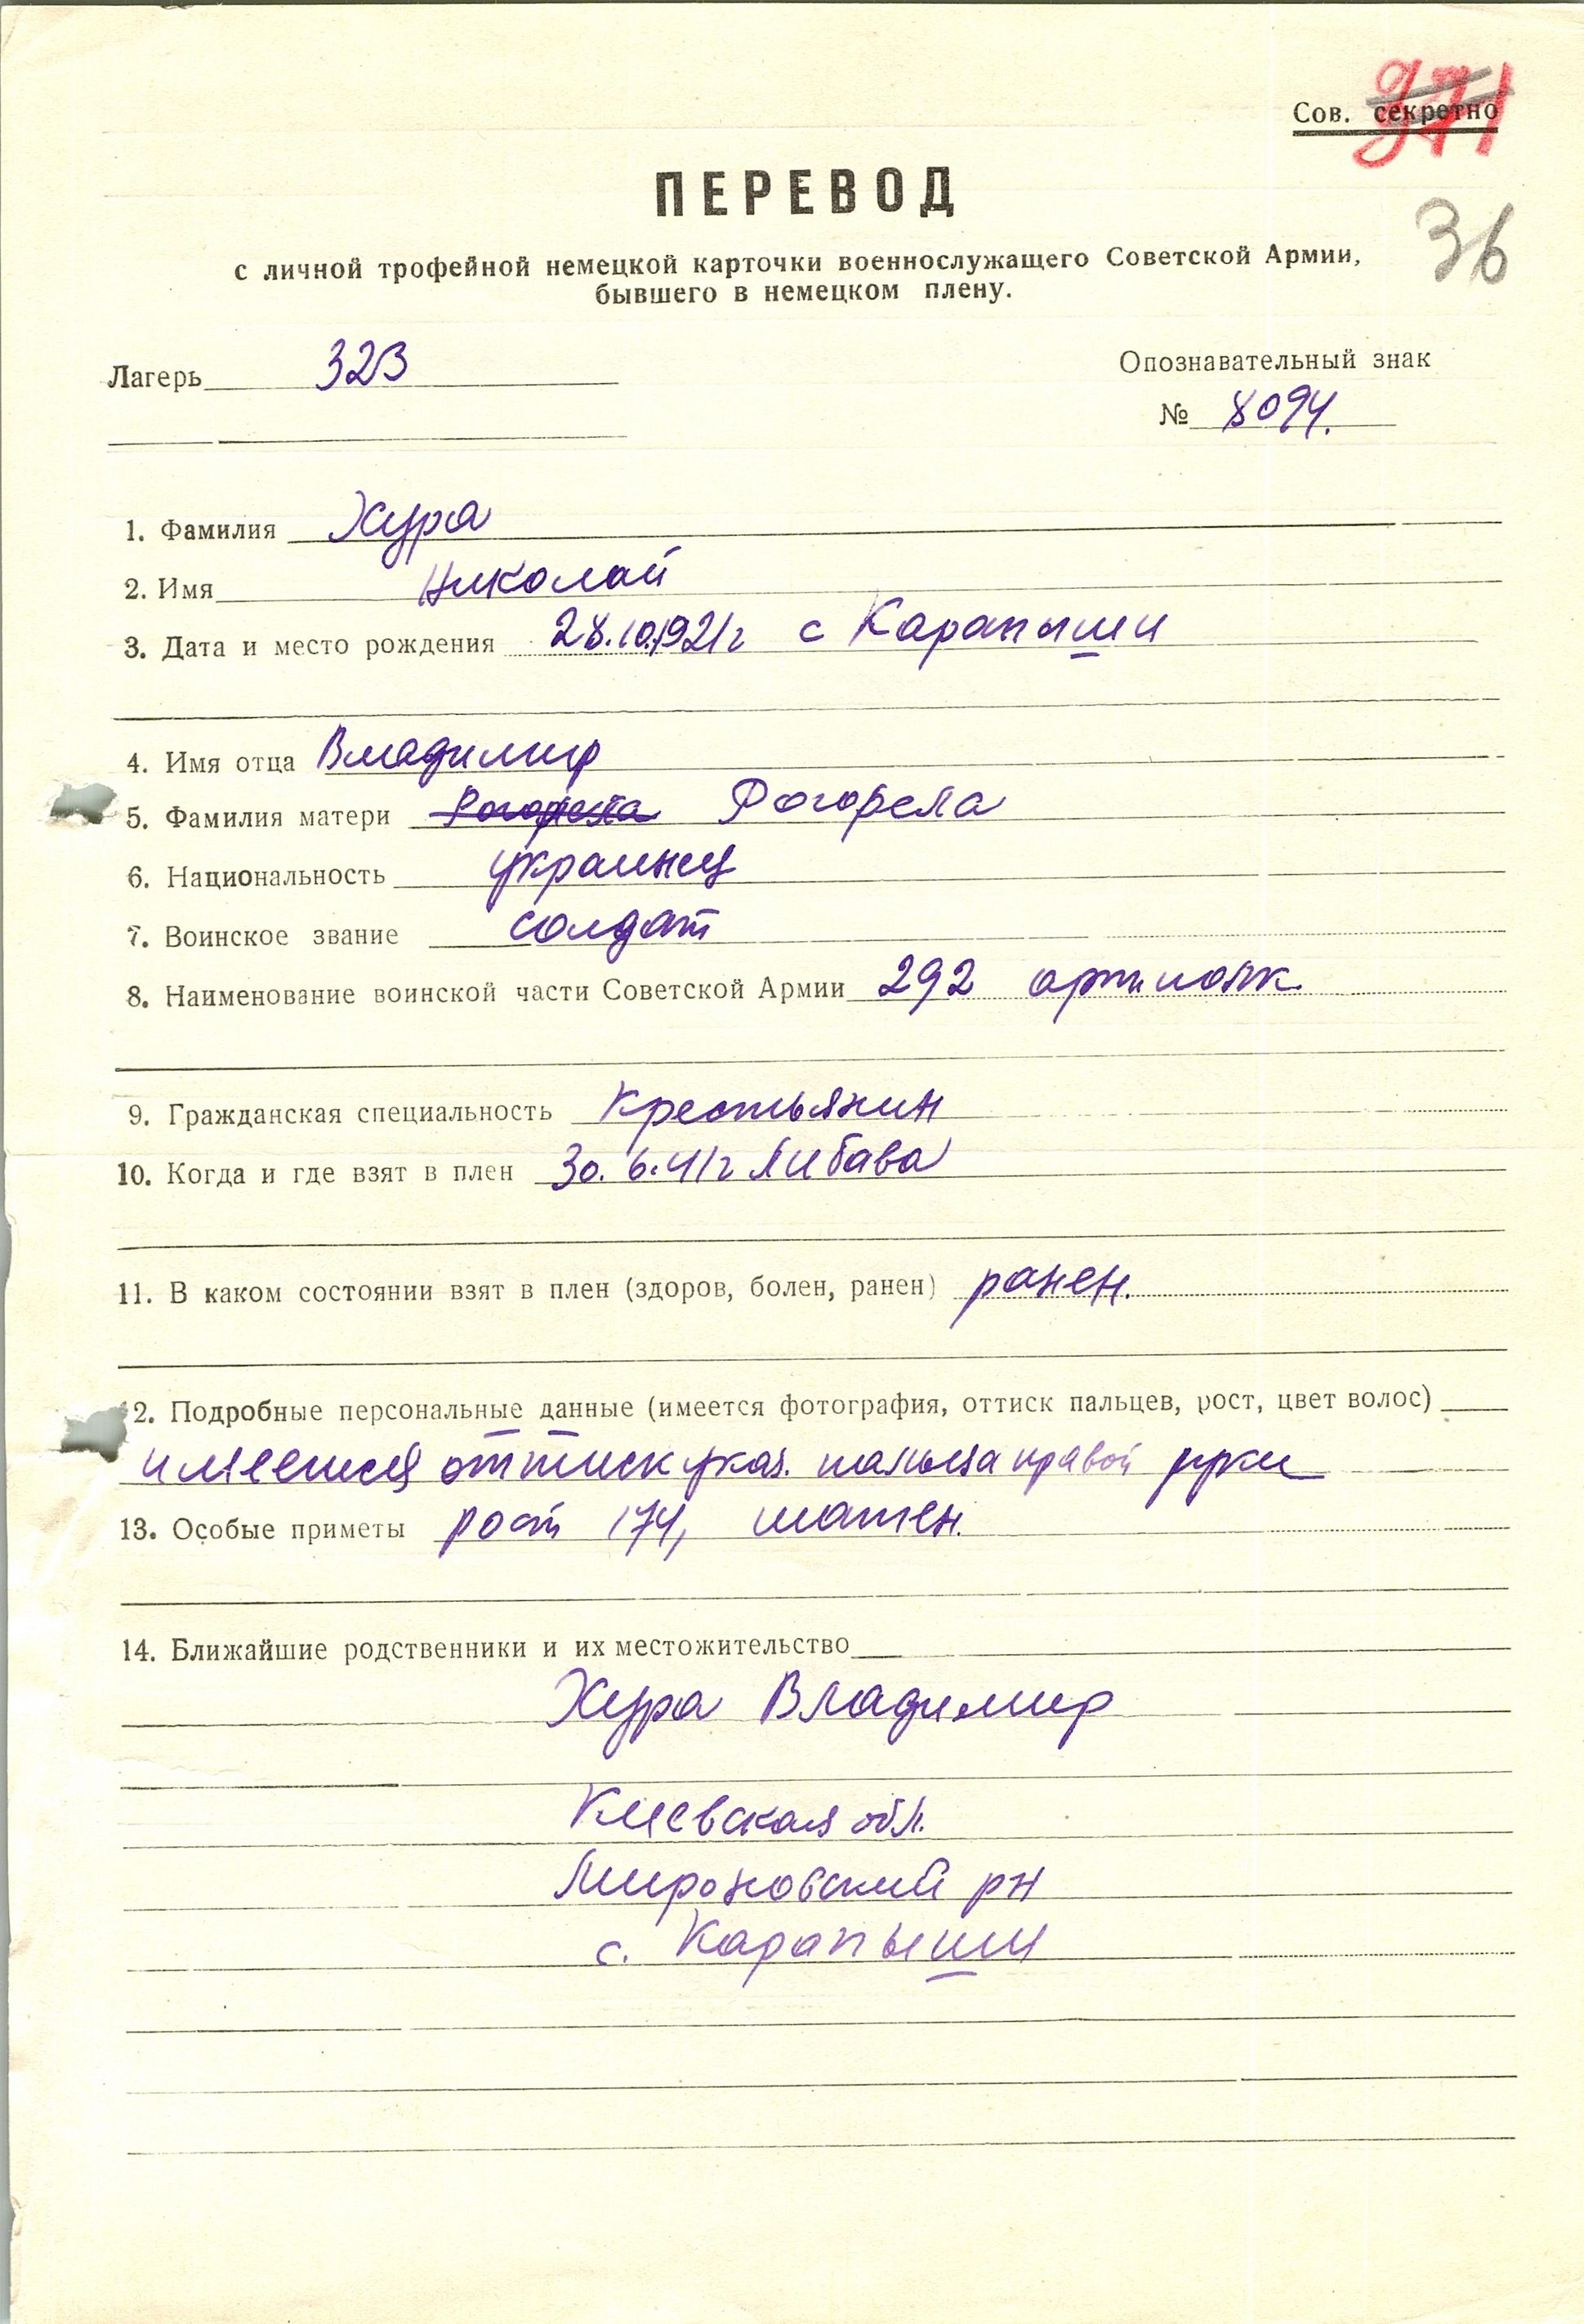 Сов. секретно
971
ПЕРЕВОД
36
с личной трофейной немецкой карточки военнослужащего Советской Армии,
бывшего в немецком плену.
Лагерь 323
Опознавательный знак
№ 8094.
1. Фамилия Хура
2. Имя Николай
3. Дата и место рождения 28.10.1921г с Карапыши
4. Имя отца Владимир
5. Фамилия матери Рогорела Рогорела
6. Национальность украинец
7. Воинское звание солдат
8. Наименование воинской части Советской Армии 292 арт. полк.
9. Гражданская специальность крестьянин
10. Когда и где взят в плен 30.6.41г Либава
11. В каком состоянии взят в плен (здоров, болен, ранен) ранен.
12. Подробные персональные данные (имеется фотография, оттиск пальцев, рост, цвет волос)
имеется оттиск указ. пальца правой руки
13. Особые приметы рост 174, шатен.
14. Ближайшие родственники и их местожительство
Хура Владимир
Киевская обл.
Мироновский рн
с. Карапыши